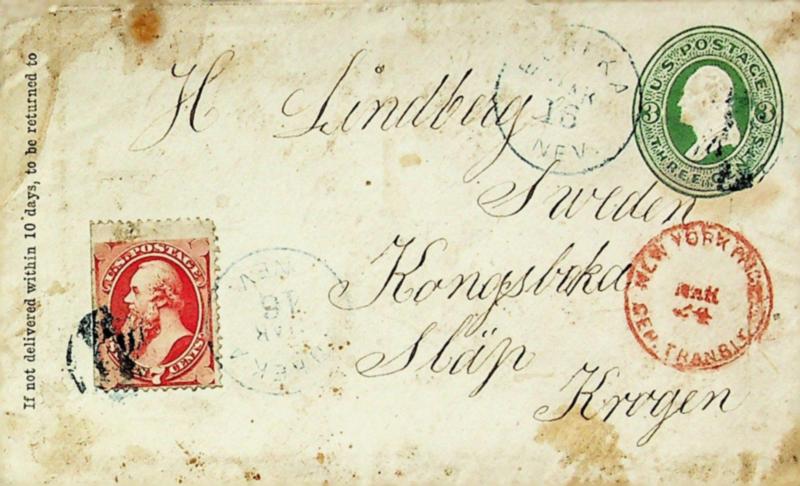 If not delivered within 10 days, to be returned to
H Lindberg
Sweden
Kongsbaka
Släp
Krogen
EUREKA
MAR
16
NEV.
U.S. POSTAGE
3 3
THREE CENTS
U.S. POSTAGE
CENTS
EUREKA
MAR
16
NEV.
NEW YORK
MAR
24
TRANSIT